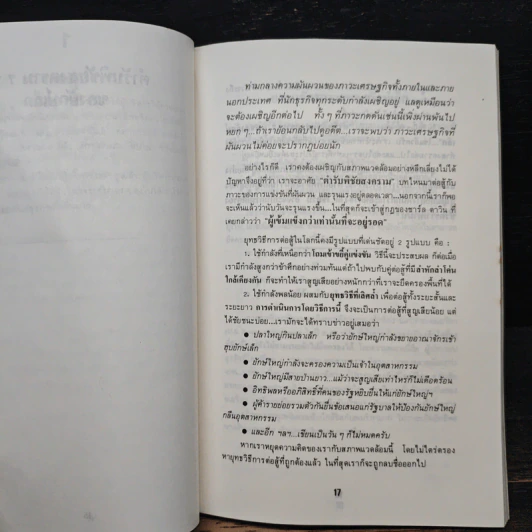 ท่ามกลางความผันผวนของภาวะเศรษฐกิจทั้งภายในและภาย
นอกประเทศ ที่นักธุรกิจทุกระดับกำลังเผชิญอยู่ แลดูเหมือนว่า
จะต้องเผชิญอีกต่อไป ทั้ง ๆ ที่ภาวะกดดันเช่นนี้เพิ่งผ่านพ้นไป
หยก ๆ ...ถ้าเราย้อนกลับไปดูอดีต...เราจะพบว่า ภาวะเศรษฐกิจที่
ผันผวนไม่ค่อยจะปรากฏบ่อยนัก
อย่างไรก็ดี เราคงต้องเผชิญกับสภาพแวดล้อมอย่างหลีกเลี่ยงไม่ได้
ปัญหาจึงอยู่ที่ว่า เราจะอาศัย "ตำรับพิชัยสงคราม" บทไหนมาต่อสู้กับ
ภาวะของการแข่งขันที่ผันผวน และรุนแรงอยู่ตลอดเวลา...นอกจากนี้เราก็พอ
จะเห็นแล้วว่านับวันจะรุนแรงขึ้น...ในที่สุดก็จะเข้าสู่กฎของชาร์ล ดาวิน ที่
เคยกล่าวว่า "ผู้เข้มแข็งกว่าเท่านั้นที่จะอยู่รอด"
ยุทธวิธีการต่อสู้ในโลกนี้คงมีรูปแบบที่เด่นชัดอยู่ 2 รูปแบบ คือ :
1. ใช้กำลังที่เหนือกว่าโถมเข้าขยี้คู่แข่งขัน วิธีนี้จะประสบผล ก็ต่อเมื่อ
เรามีกำลังสูงกว่าข้าศึกอย่างท่วมท้นแต่ถ้าไปพบกับคู่ต่อสู้ที่มีลำหักลำโค่น
ใกล้เคียงกัน ก็จะทำให้เราสูญเสียอย่างหนักกว่าที่เราจะยึดครองพื้นที่ได้
2. ใช้กำลังพลน้อยผสมกับยุทธวิธีที่เลิศล้ำ เพื่อต่อสู้ทั้งระยะสั้นและ
ระยะยาว การดำเนินการโดยวิธีการนี้ จึงจะเป็นการต่อสู้ที่สูญเสียน้อย แต่
ได้ชัยชนะบ่อย...เรามักจะได้ทราบข่าวอยู่เสมอว่า
● ปลาใหญ่กินปลาเล็ก หรือว่ายักษ์ใหญ่กำลังขยายอาณาจักรเข้า
ฮุบยักษ์เล็ก
● ยักษ์ใหญ่กำลังจะครองความเป็นเจ้าในอุตสาหกรรม
● ยักษ์ใหญ่มีสายป่านยาว...แม้ว่าจะสูญเสียเท่าไหร่ก็ไม่เดือดร้อน
● อิทธิพลหรืออภิสิทธิ์ที่คนของรัฐหยิบยื่นให้แก่ยักษ์ใหญ่ฯ
● ผู้ค้ารายย่อยรวมตัวกันยื่นข้อเสนอแก่รัฐบาลให้ป้องกันยักษ์ใหญ่
กลืนอุตสาหกรรม
● และอีก ฯลฯ...เขียนเป็นวัน ๆ ก็ไม่หมดครับ
หากเราหยุดความคิดของเรากับสภาพแวดล้อมนี้ โดยไม่ไตร่ตรอง
หายุทธวิธีการต่อสู้ที่ถูกต้องแล้ว ในที่สุดเราก็จะถูกลบชื่อออกไป
17